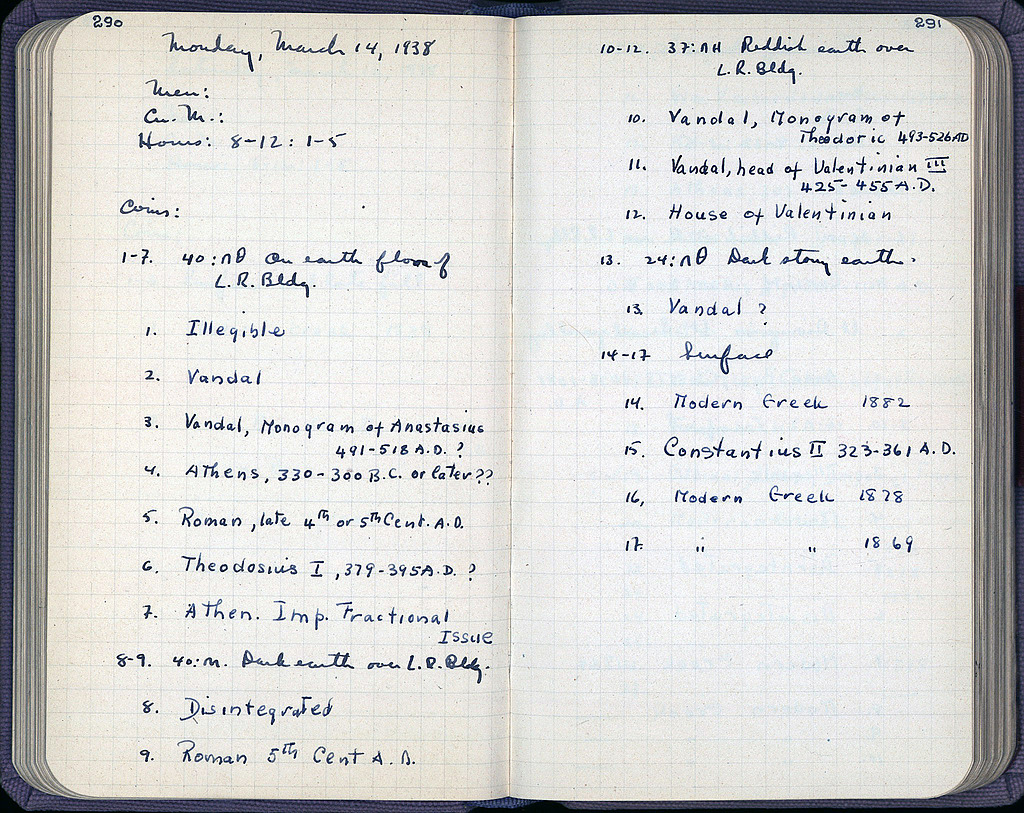 290
Monday, March 14, 1938
Men:
Cu. M.:
Hours: 8-12: 1-5
Coins:
1-7. 40:ΠΘ On earth floor of
L.R. Bldg.
1. Illegible
2. Vandal
3. Vandal, Monogram of Anastasius
491-518 A.D. ?
4. Athens, 330-300 B.C. or later??
5. Roman, late 4th or 5th Cent. A.D.
6. Theodosius I, 379-395 A.D. ?
7. Athen. Imp. Fractional
Issue
8-9. 40: Dark earth over L.R. Bldg.
8. Disintegrated
9. Roman 5th Cent A.D.
291
10-12. 37:ΠΗ Reddish earth over
L.R. Bldg.
10. Vandal, Monogram of
Theodoric 493-526 AD
11. Vandal, head of Valentinian III
425-455 A.D.
12. House of Valentinian
13. 24:ΠΘ Dark stony earth.
13. Vandal ?
14-17 Surface
14. Modern Greek 1882
15. Constantius II 323-361 A.D.
16, Modern Greek 1878
17. " " 1869